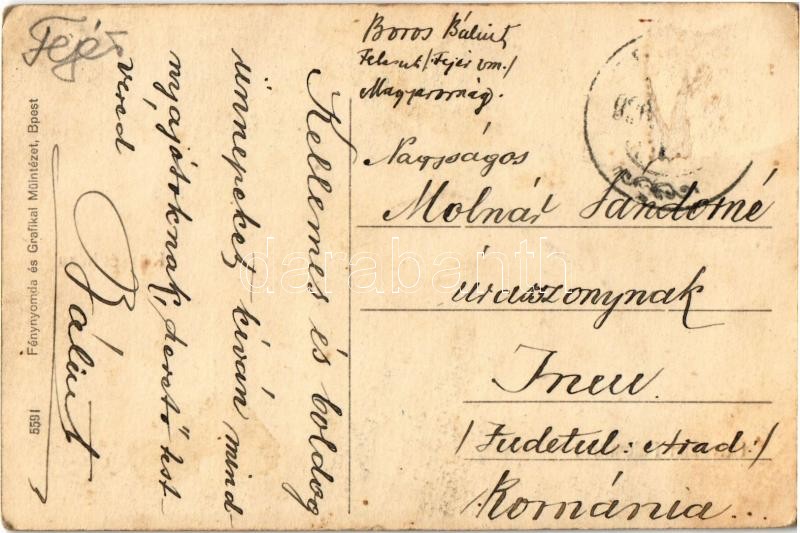 Fejér
Boros Bálint
Felcsut /Fejér vm./
Magyarország.
Nagyságos
Molnár Sándorné
úrasszonynak
Ineu.
/Judetul: Arad:/
Románia...
Kellemes és boldog
ünnepeket kíván mind-
nyájótoknak, szerető test-
véred
Bálint
5591 Fénynyomda és Grafikai Műintézet, Bpest
darabanth